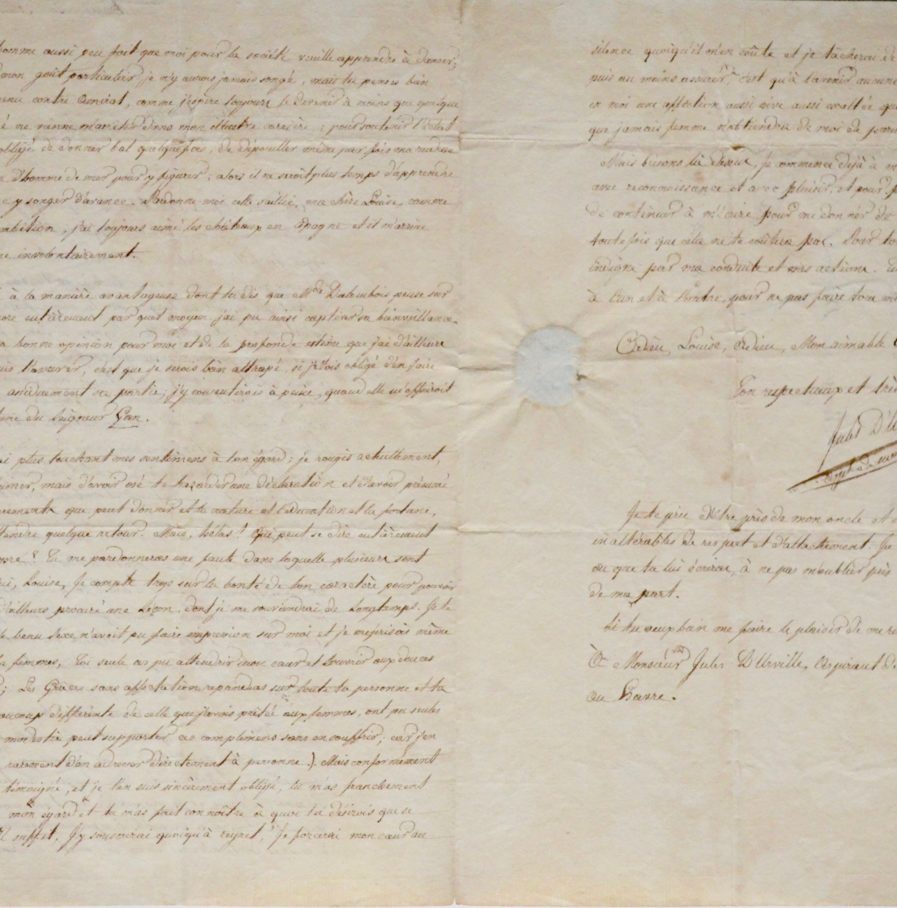 homme aussi peu fait que moi pour la société veuille apprendre à danser;
mon goût particulier, je n'y aurois jamais songé, mais tu penses bien
contre Amiral, comme j'espère toujours le devenir à moins que quelque
ne vienne m'arrêter dans mon illustre carière; pour soutenir l'éclat
obligé de donner bal quelquefois, de dépouiller même par fois ma
d'homme de mer pour y figurer; alors il ne seroit plus temps d'apprendre
y songer d'avance. Pardonne moi cette saillie, ma chère Louise, comme
ambition, j'ai toujours aimé les châteaux en Espagne et il m'arrive
involontairement.
à la manière avantageuse dont tu dis que pense sur
entièrement par quel moyen j'ai pu ainsi captiver sa bienveillance.
la bonne opinion pour moi et de la profonde estime que j'ai d'ailleurs
l'assurer, c'est que je serois bien attrapé, si j'étois obligé d'en faire
assidument sa partie; j'y consentirois à peine, quand elle m'offriroit
du Seigneur
plus touchant mes sentimens à ton égard; je rougis actuellement,
mais d'avoir osé te hazarder une déclaration et d'avoir présumé
que peut donner et la nature et l'éducation et la fortune,
quelque retour. Mais, hélas! Qui peut se dire entièrement
Tu me pardonneras une faute dans laquelle plusieurs sont
Louise, je compte trop sur la bonté de ton caractère pour pouvoir
d'ailleurs procuré une Leçon, dont je me souviendrai de Longtemps. Je te
le beau Sexe n'avoit pu faire impression sur moi et je méprisois même
femmes, toi seule as pu attendrir mon cœur et l'ouvrir aux douces
Les Grâces sans affectation répandues sur toute ta personne et ta
différente de celle que j'avois prêtée aux femmes, ont pu seules
modestie peut supporter ces complimens sans en souffrir, car j'en
rarement d'en adresser directement à personne.). Mais conformément
témoigné, et je t'en suis sincèrement obligé, tu m'as franchement
mon égard et tu m'as fait connoître à quoi tu désirois que je
suffit. J'y souscrirai quoiqu'à regret, Je forcerai mon cœur au
silence quoiqu'il m'en coûte et je tâcherai de
puis au moins assurer, c'est qu'à l'avenir aucune
en moi une affection aussi vive aussi exaltée que
que jamais femme n'obtiendra de moi de pareils
Mais brisons là dessus, Je commence déjà à
avec reconnaissance et avec plaisir, et pour
de continuer à m'écrire pour me donner de
toutefois que cela ne te coûtera pas. Pour
indigne par ma conduite et mes actions.
à l'un et à l'autre, pour ne pas faire tou
Adieu, Louise, Adieu, Mon aimable
Ton respectueux et très
Jules D'U
Je te prie d'être près de mon oncle et
inaltérables de respect et d'attachement. Je
ou que tu lui écriras, à ne pas m'oublier près
de ma part.
Si tu veux bien me faire le plaisir de me
À Monsieur Jules D'Urville, Aspirant de
au Havre.